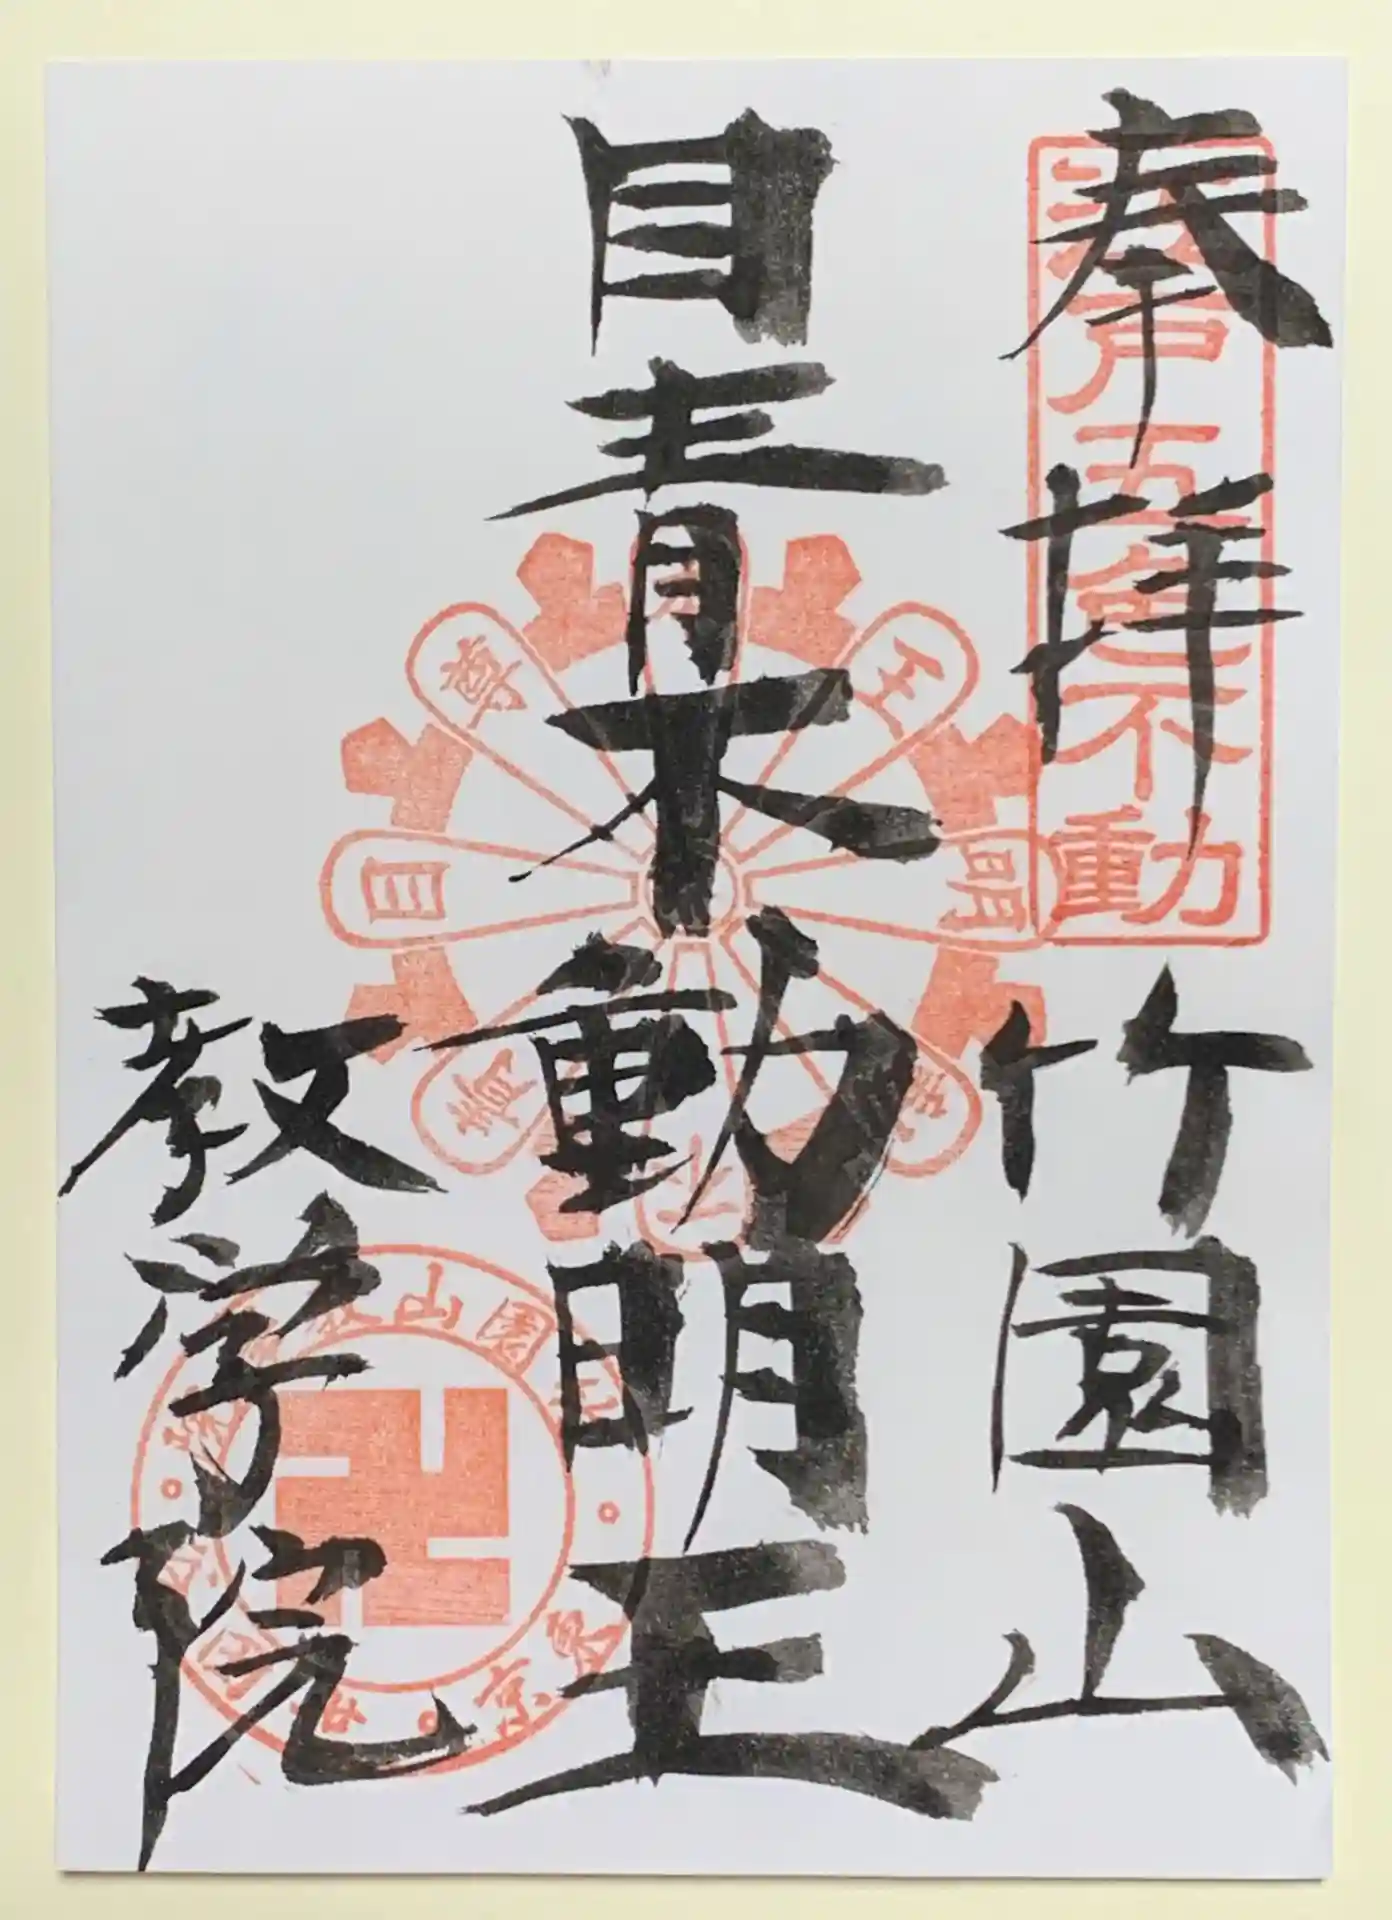 奉拝
竹園山
目青不動明王
教学院
江戸五色不動